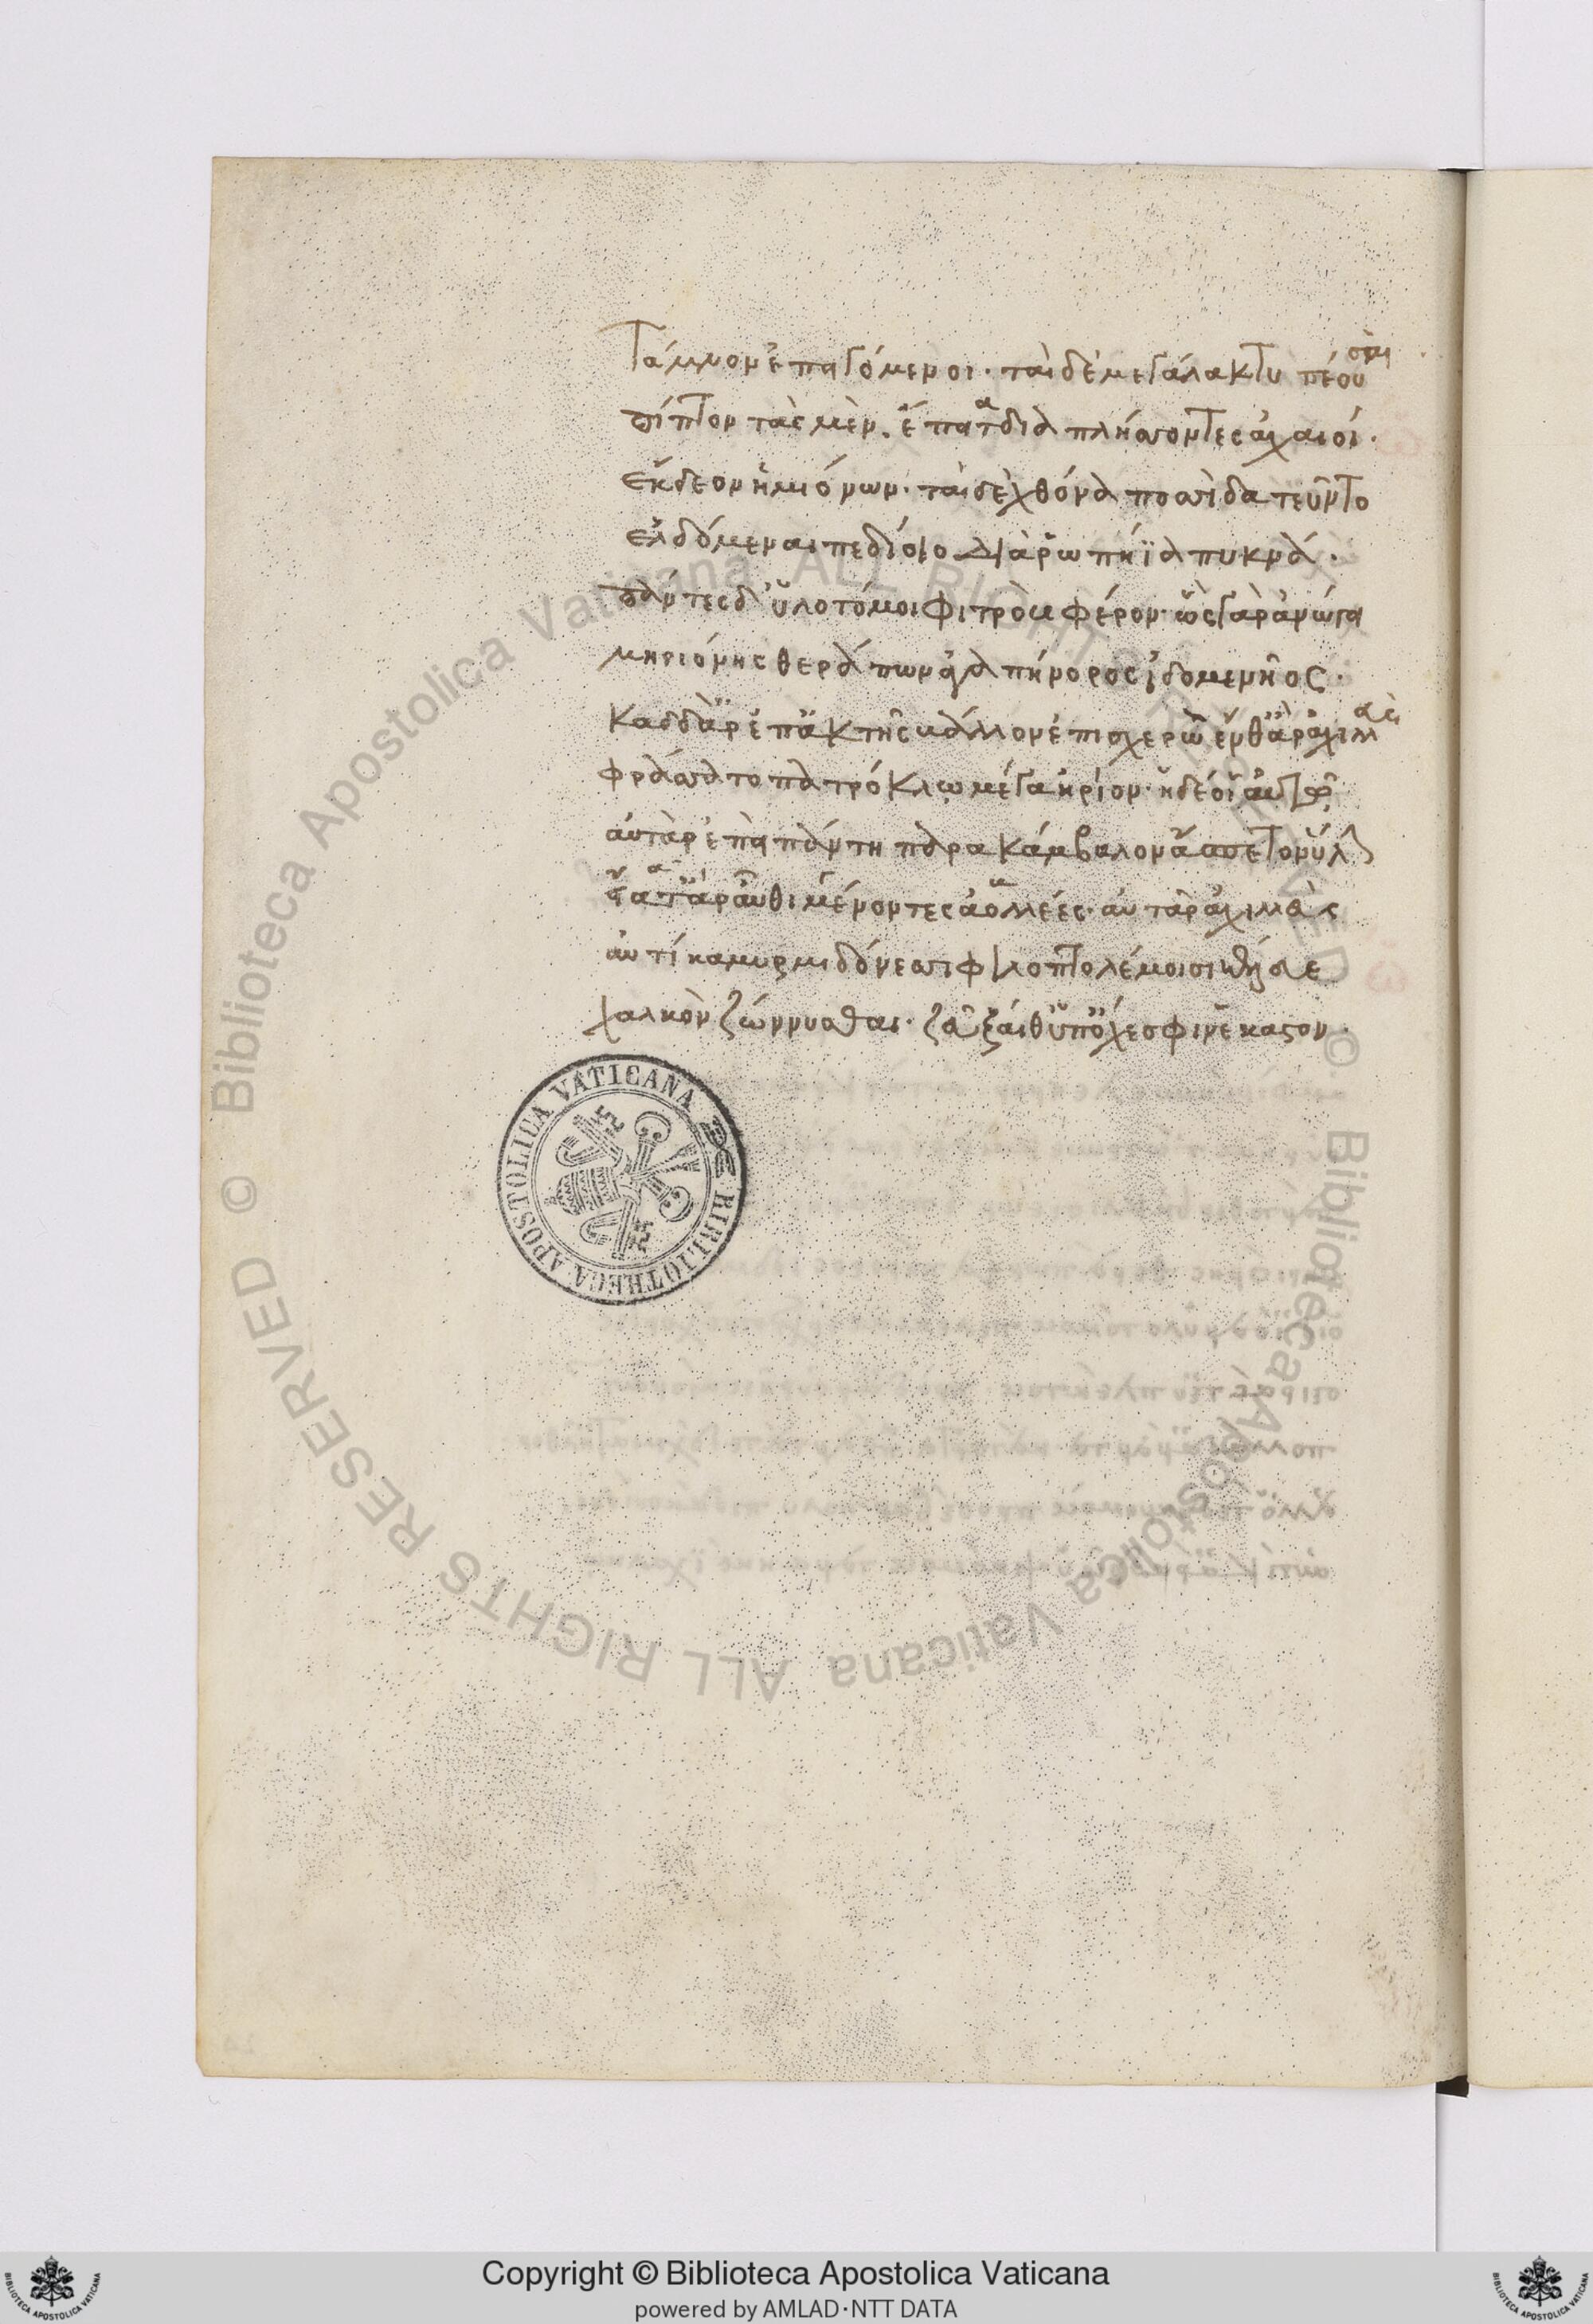 τάμνον ἐπειγόμενοι· ταὶ δὲ μεγάλα κτυπέουσαι
πίπτον τὰς μὲν ἔπειτα διαπλήσσοντες ἀχαιοί·
ἔκδεον ἡμιόνων· ταὶ δὲ χθόνα ποσσὶ δατεῦντο
ἐλδόμεναι πεδίοιο διὰ ῥωπήϊα πυκνά·
πάντες δ' ὑλοτόμοι φιτροὺς φέρον· ὡς γὰρ ἀνώγει
μηριόνης θεράπων ἀγαπήνορος ἰδομενῆος·
καδδ' ἄρ' ἐπ' ἀκτῆς βάλλον ἐπισχερὼ ἔνθ' ἄρ' ἀχιλλεὺς
φράσσατο πατρόκλω μέγα ἠρίον· ἠδὲ οἷ αὐτῷ
αὐτὰρ ἐπεὶ πάντη παρακάμβαλον ἄσπετον ὕλην
εἵατ' ἄρ' αὖθι μένοντες ἀολλέες· αὐτὰρ ἀχιλλεὺς
αὐτίκα μυρμιδόνεσσι φιλοπτολέμοισι κέλευσε
χαλκὸν ζώννυσθαι· ζεῦξαι θ' ὑπ' ὄχεσφιν ἕκαστον·
BIBLIOTHECA APOSTOLICA VATICANA
© Biblioteca Apostolica Vaticana ALL RIGHTS RESERVED
© Biblioteca Apostolica Vaticana ALL RIGHTS RESERVED
Copyright © Biblioteca Apostolica Vaticana
powered by AMLAD·NTT DATA